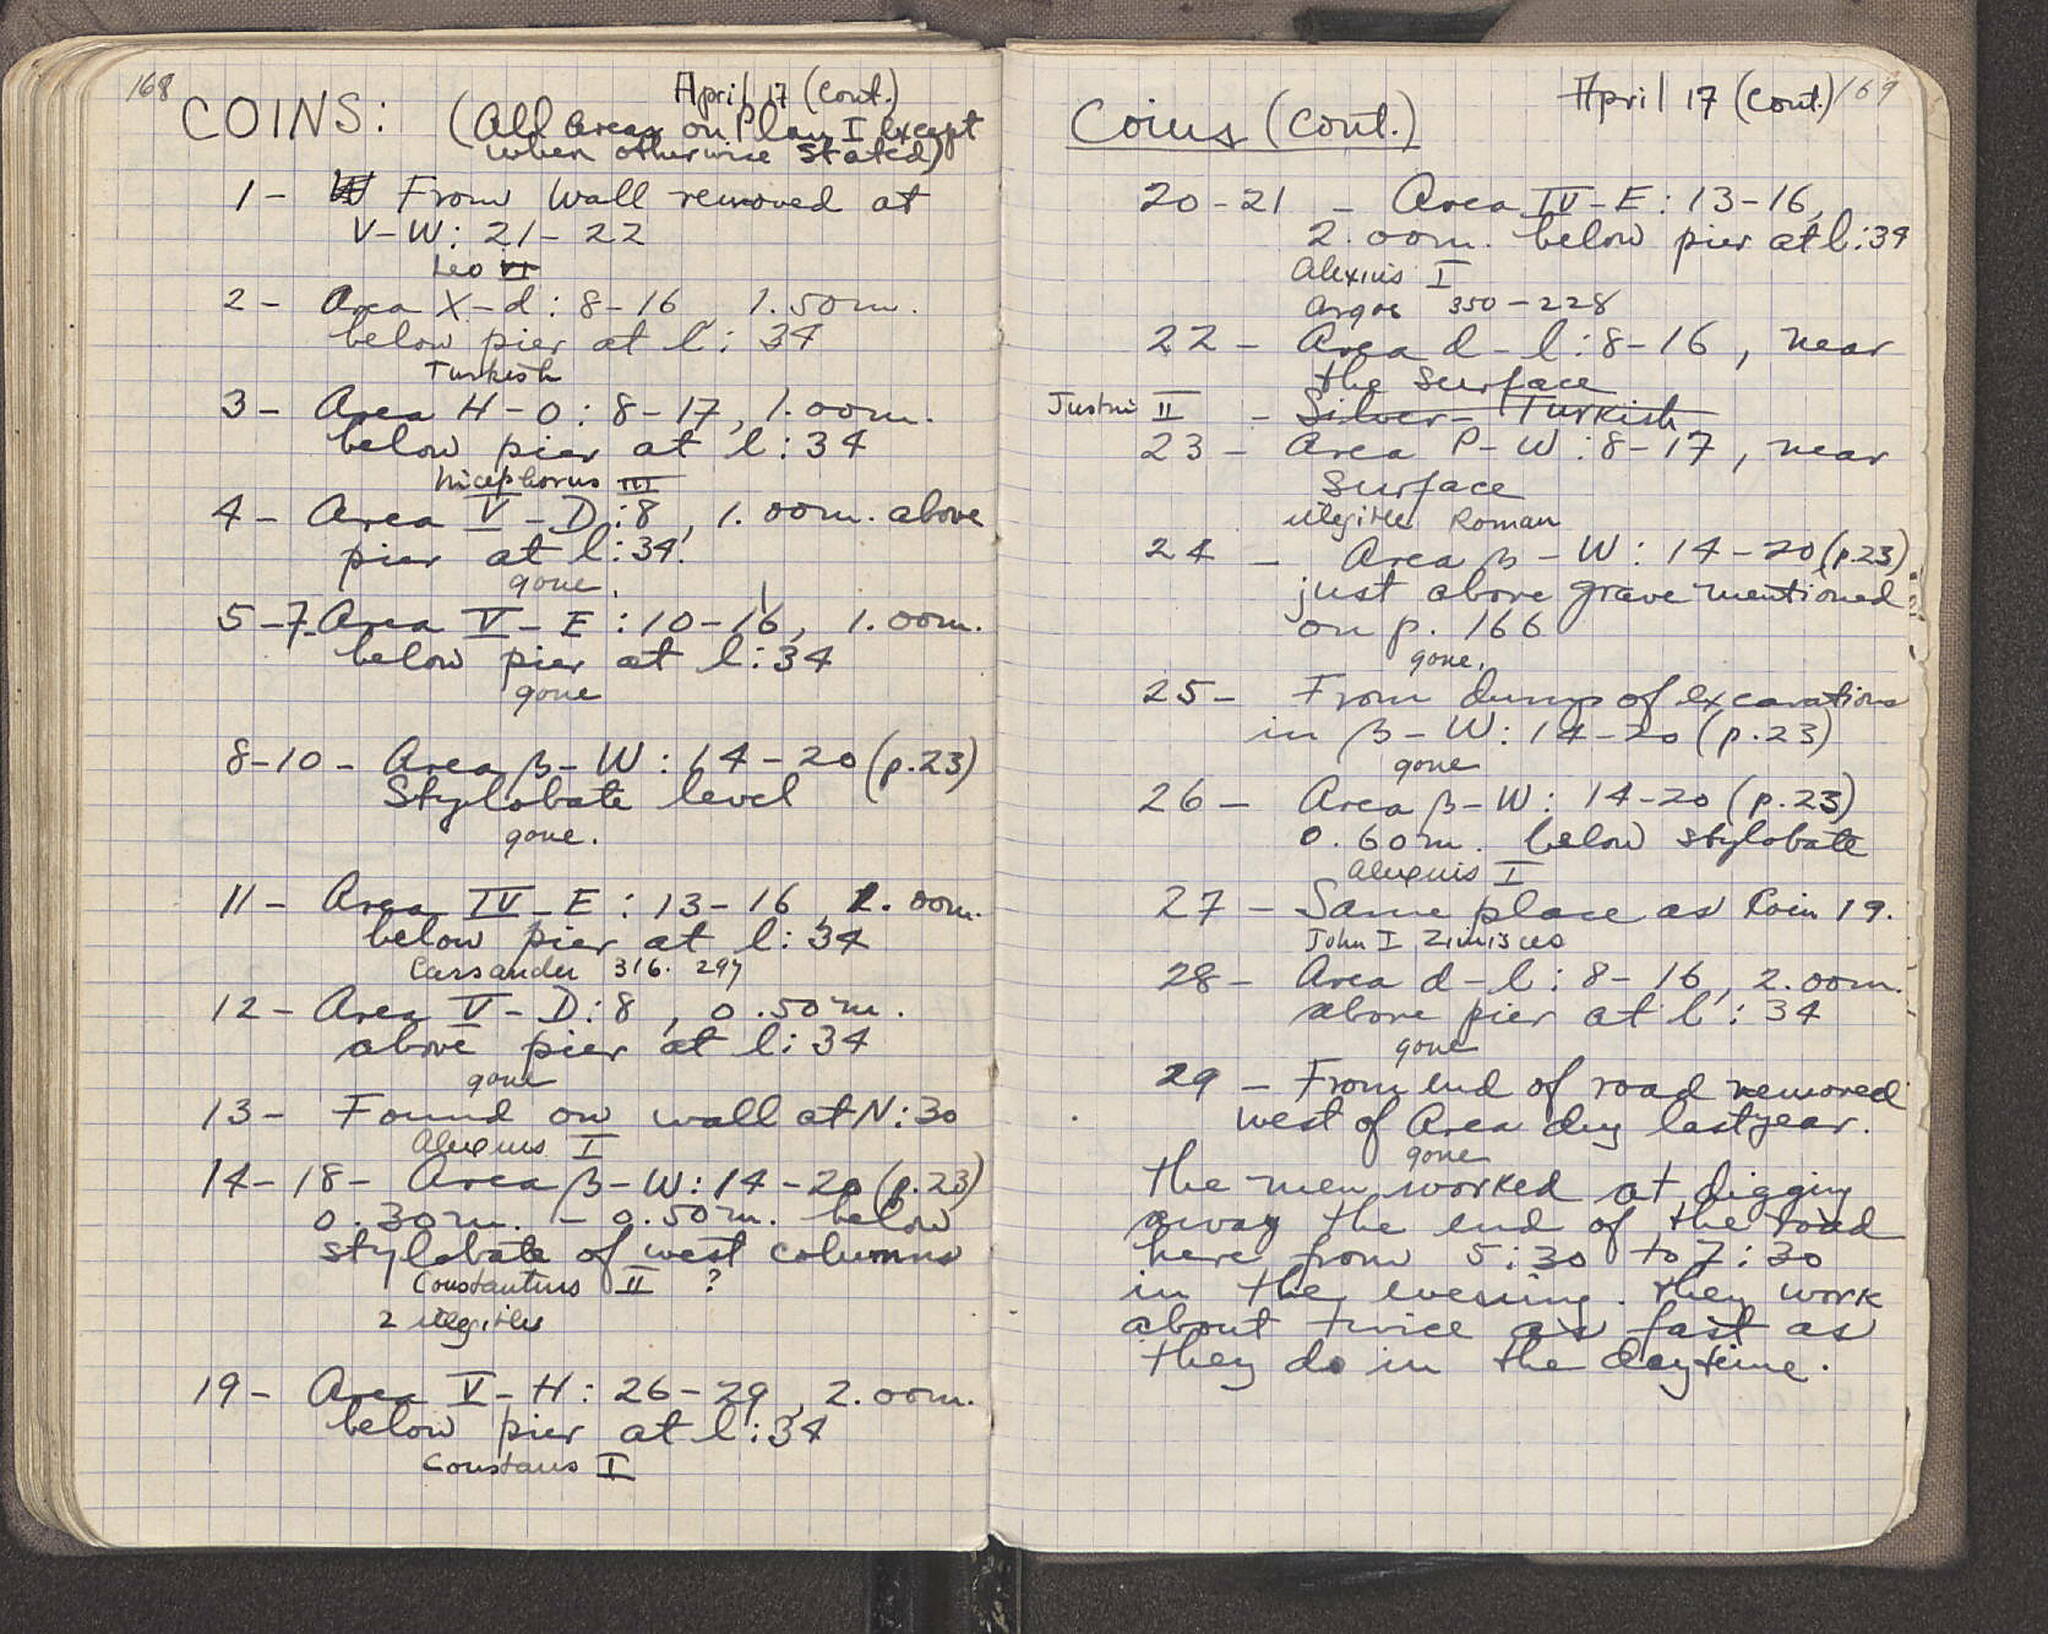 168
April 17 (cont.)
COINS: (All areas on Plan I except
when otherwise stated)
1 - From Wall removed at
V-W: 21-22
Leo VI
2 - Area X-d: 8-16, 1.50m.
below pier at l: 34
Turkish
3 - Area H-O: 8-17, 1.00m.
below pier at l: 34
Nicephorus III
4 - Area V-D: 8, 1.00m. above
pier at l: 34.
gone.
5-7 - Area V-E: 10-16, 1.00m.
below pier at l: 34
gone
8-10 - Area β-W: 14-20 (p.23)
Stylobate level
gone.
11 - Area IV-E: 13-16, 2.00m.
below pier at l: 34
Cassander 316-297
12 - Area V-D: 8, 0.50m.
above pier at l: 34
gone
13 - Found on wall at N: 30
Alexius I
14-18 - Area β-W: 14-20 (p.23)
0.30m. - 0.50m. below
stylobate of west columns
Constantius II ?
2 illegibles
19 - Area V-H: 26-29, 2.00m.
below pier at l: 34
Constans I
April 17 (cont.) 169
Coins (cont.)
20-21 - Area IV-E: 13-16,
2.00m. below pier at l: 34
Alexius I
Argos 350-228
22 - Area d-l: 8-16, near
the surface
Justin II - Silver - Turkish
23 - Area P-W: 8-17, near
surface
illegible Roman
24 - Area β-W: 14-20 (p.23)
just above grave mentioned
on p. 166
gone.
25 - From dump of excavations
in β-W: 14-20 (p.23)
gone
26 - Area β-W: 14-20 (p.23)
0.60m. below stylobate
Alexius I
27 - Same place as Coin 19.
John I Zimisces
28 - Area d-l: 8-16, 2.00m.
above pier at l: 34
gone
29 - From end of road removed
west of Area dug last year.
gone
The men worked at digging
away the end of the road
here from 5:30 to 7:30
in the evening. They work
about twice as fast as
they do in the daytime.